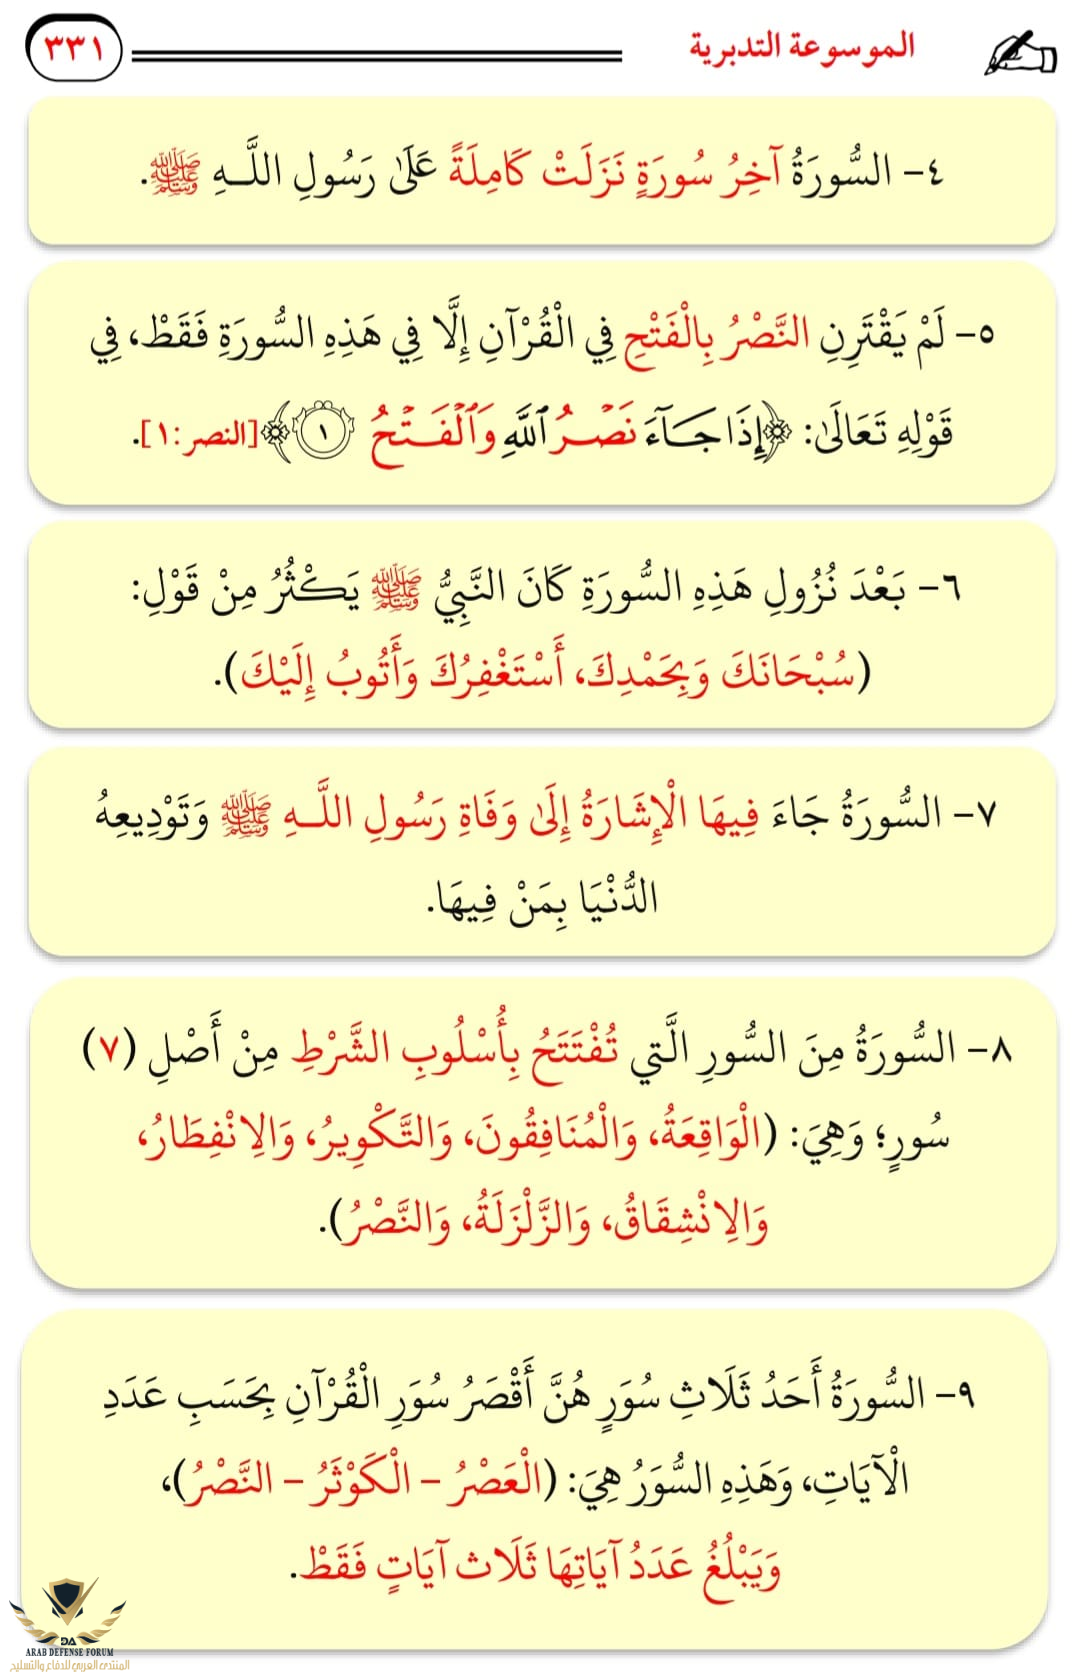 الموسوعة التدبرية
٣٣١
٤- السُّورَةُ آخِرُ سُورَةٍ نَزَلَتْ كَامِلَةً عَلَىٰ رَسُولِ اللَّهِ ﷺ.
٥- لَمْ يَقْتَرِنِ النَّصْرُ بِالْفَتْحِ فِي الْقُرْآنِ إِلَّا فِي هَذِهِ السُّورَةِ فَقَطْ، فِي
قَوْلِهِ تَعَالَىٰ: ﴿إِذَا جَآءَ نَصْرُ ٱللَّهِ وَٱلْفَتْحُ ١﴾ [النصر:١].
٦- بَعْدَ نُزُولِ هَذِهِ السُّورَةِ كَانَ النَّبِيُّ ﷺ يَكْثُرُ مِنْ قَوْلِ:
(سُبْحَانَكَ وَبِحَمْدِكَ، أَسْتَغْفِرُكَ وَأَتُوبُ إِلَيْكَ).
٧- السُّورَةُ جَاءَ فِيهَا الْإِشَارَةُ إِلَىٰ وَفَاةِ رَسُولِ اللَّهِ ﷺ وَتَوْدِيعِهُ
الدُّنْيَا بِمَنْ فِيهَا.
٨- السُّورَةُ مِنَ السُّورِ الَّتِي تُفْتَتَحُ بِأُسْلُوبِ الشَّرْطِ مِنْ أَصْلِ (٧)
سُورٍ؛ وَهِيَ: (الْوَاقِعَةُ، وَالْمُنَافِقُونَ، وَالتَّكْوِيرُ، وَالِانْفِطَارُ،
وَالِانْشِقَاقُ، وَالزَّلْزَلَةُ، وَالنَّصْرُ).
٩- السُّورَةُ أَحَدُ ثَلَاثِ سُوَرٍ هُنَّ أَقْصَرُ سُوَرِ الْقُرْآنِ بِحَسَبِ عَدَدِ
الْآيَاتِ، وَهَذِهِ السُّوَرُ هِيَ: (الْعَصْرُ - الْكَوْثَرُ - النَّصْرُ)،
وَيَبْلُغُ عَدَدُ آيَاتِهَا ثَلَاث آيَاتٍ فَقَطْ.
DA
ARAB DEFENSE FORUM
المنتدى العربي للدفاع والتسليح